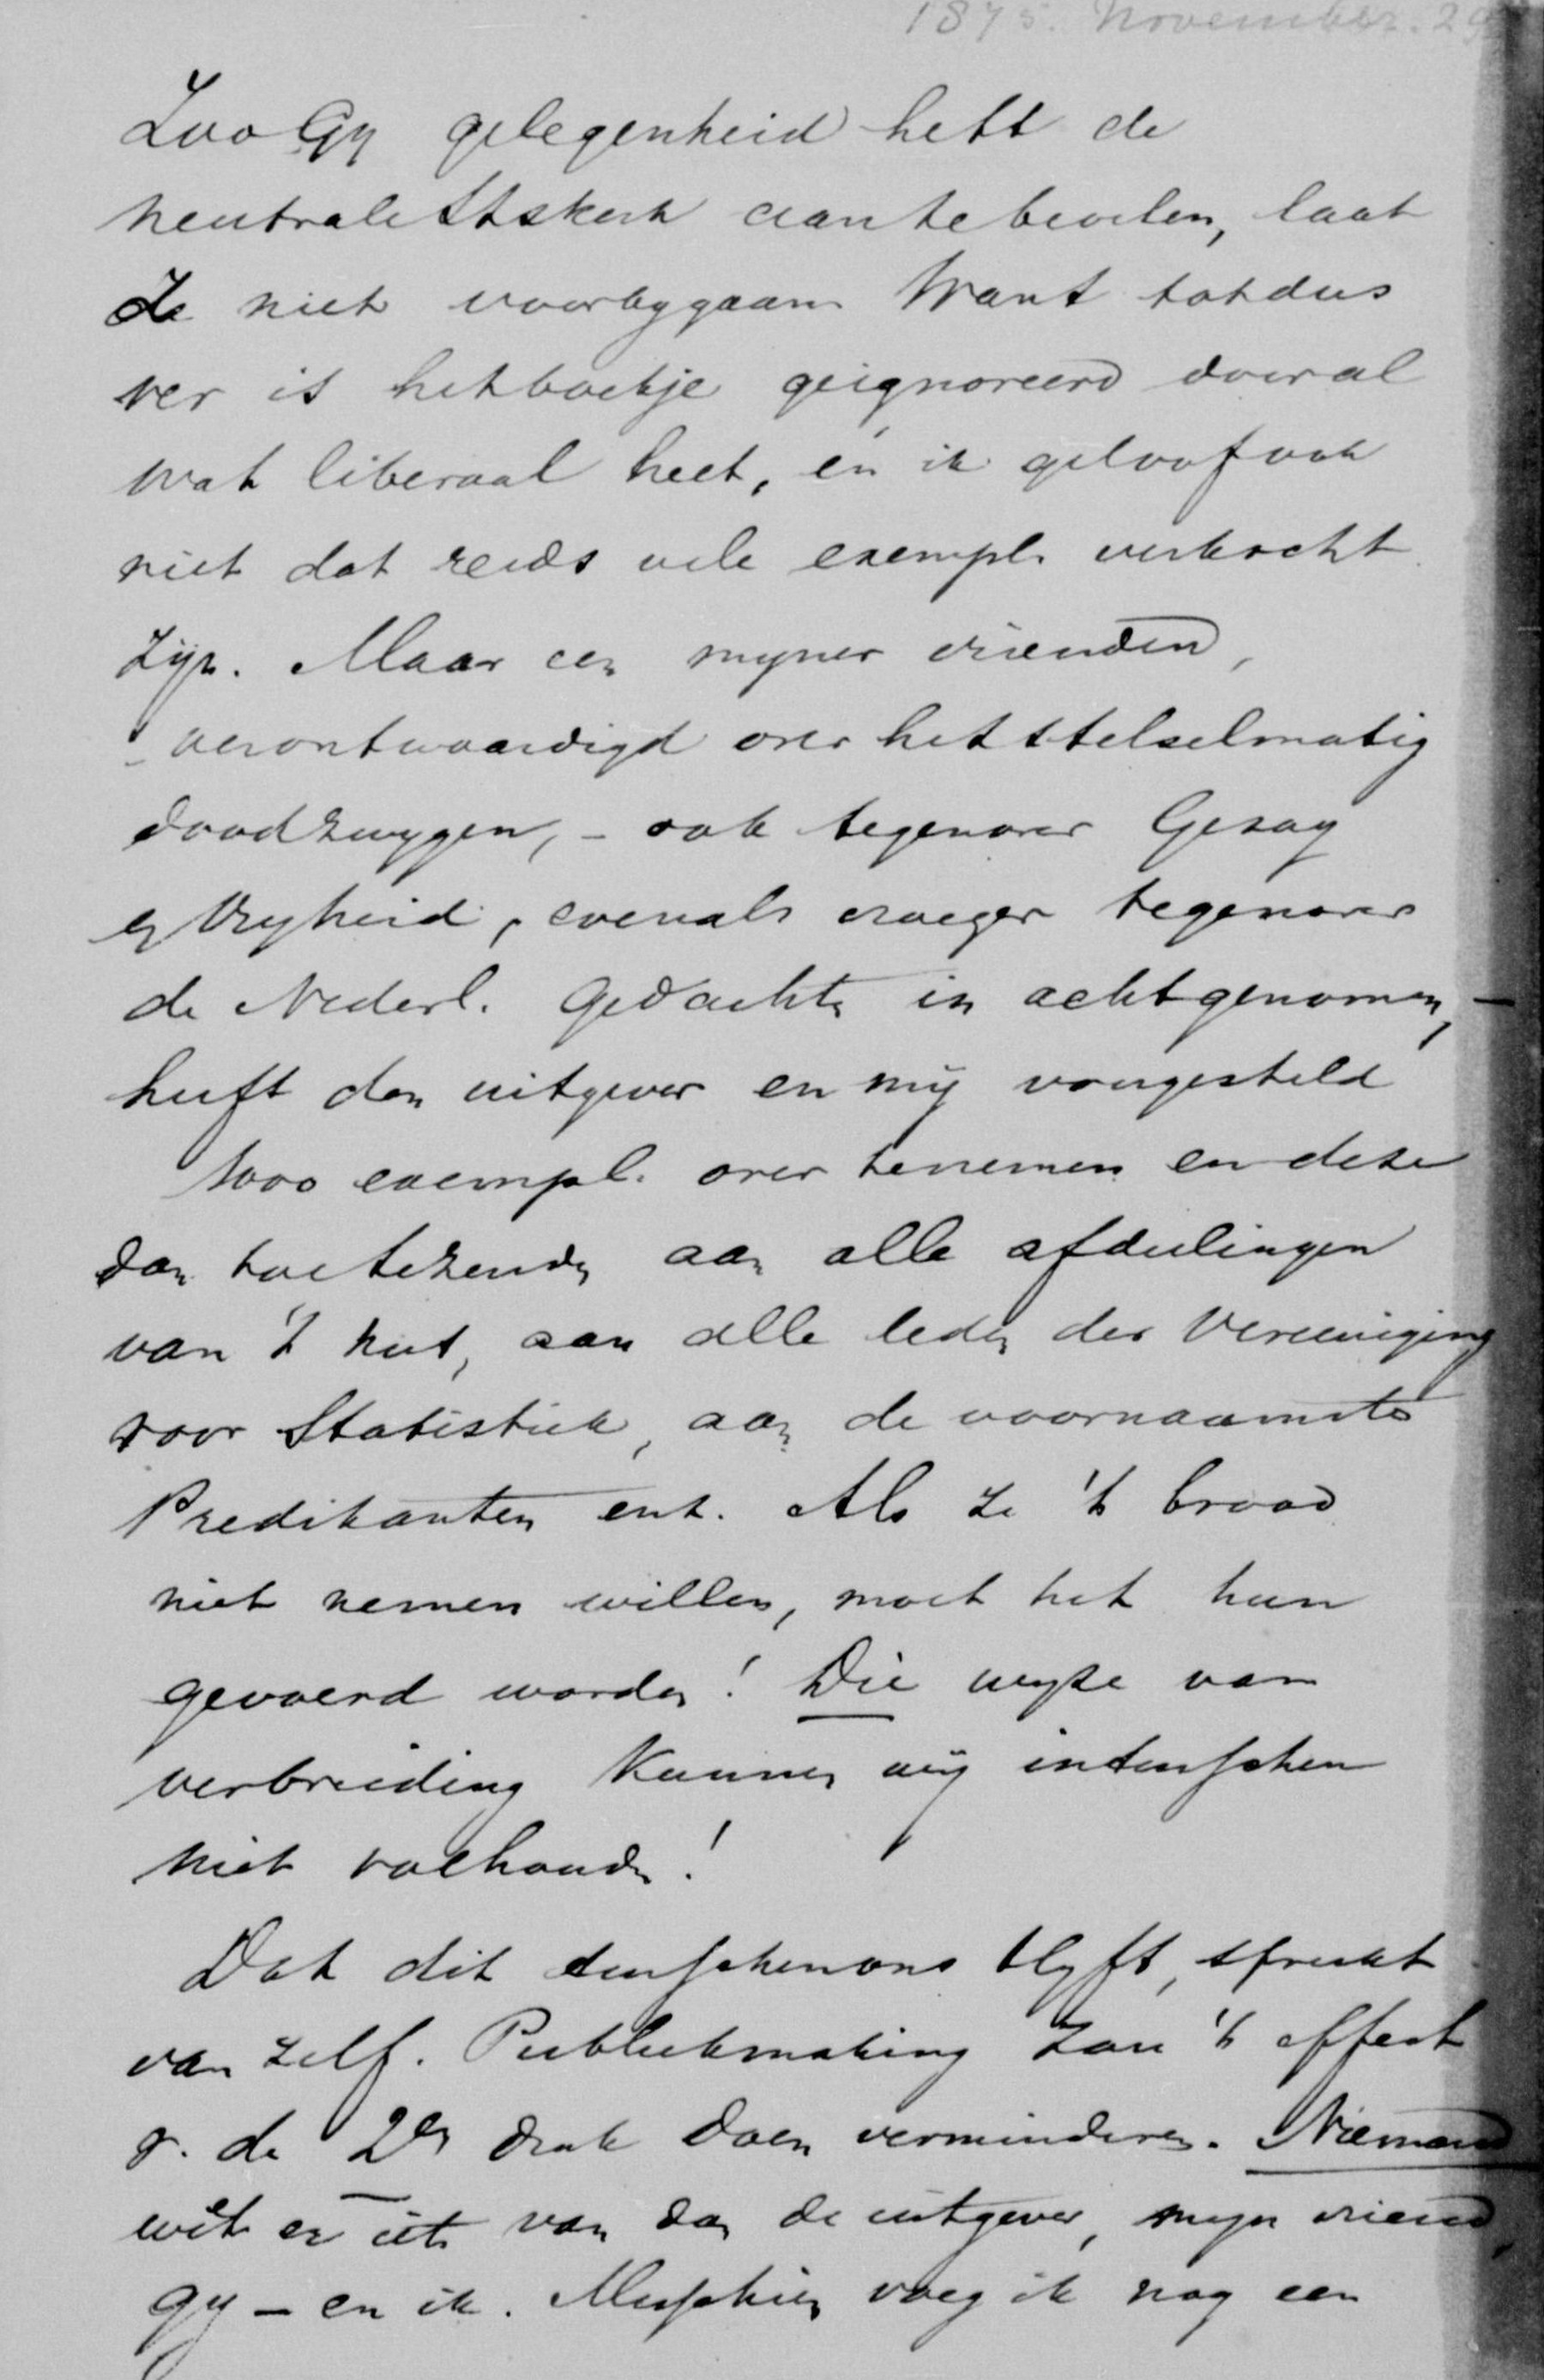 1875. November. 29
Zoo Gy gelegenheid hebt de
neutrale Stskerk aan te bevelen, laat
ze niet voorbygaan. Want totdus
ver is het boekje geignoreerd door al
wat liberaal heet, en ik geloof ook
niet dat reeds vele exempl. verkocht
zijn. Maar een myner vrienden,
- verontwaardigd over het stelselmatig
doodzwygen, - ook tegenover Gezag
en Vryheid, evenals vroeger tegenover
de Nederl. Gedachten in acht genomen, -
heeft den uitgever en mij voorgesteld
1000 exempl. over te nemen en deze
dan toe te zenden aan alle afdeelingen
van 't Nut, aan alle leden der Vereeniging
voor Statistiek, aan de voornaamste
Predikanten enz. Als ze 't brood
niet nemen willen, moet het hun
gevoerd worden! Die wyze van
verbreiding kunnen wij intusschen
niet volhouden!
Dat dit tusschen ons blyft, spreekt
van zelf. Publiekmaking zou 't effect
v. de 2en druk doen verminderen. Niemand
weet er iets van dan de uitgever, myn vriend,
gy - en ik. Misschien voeg ik nog een